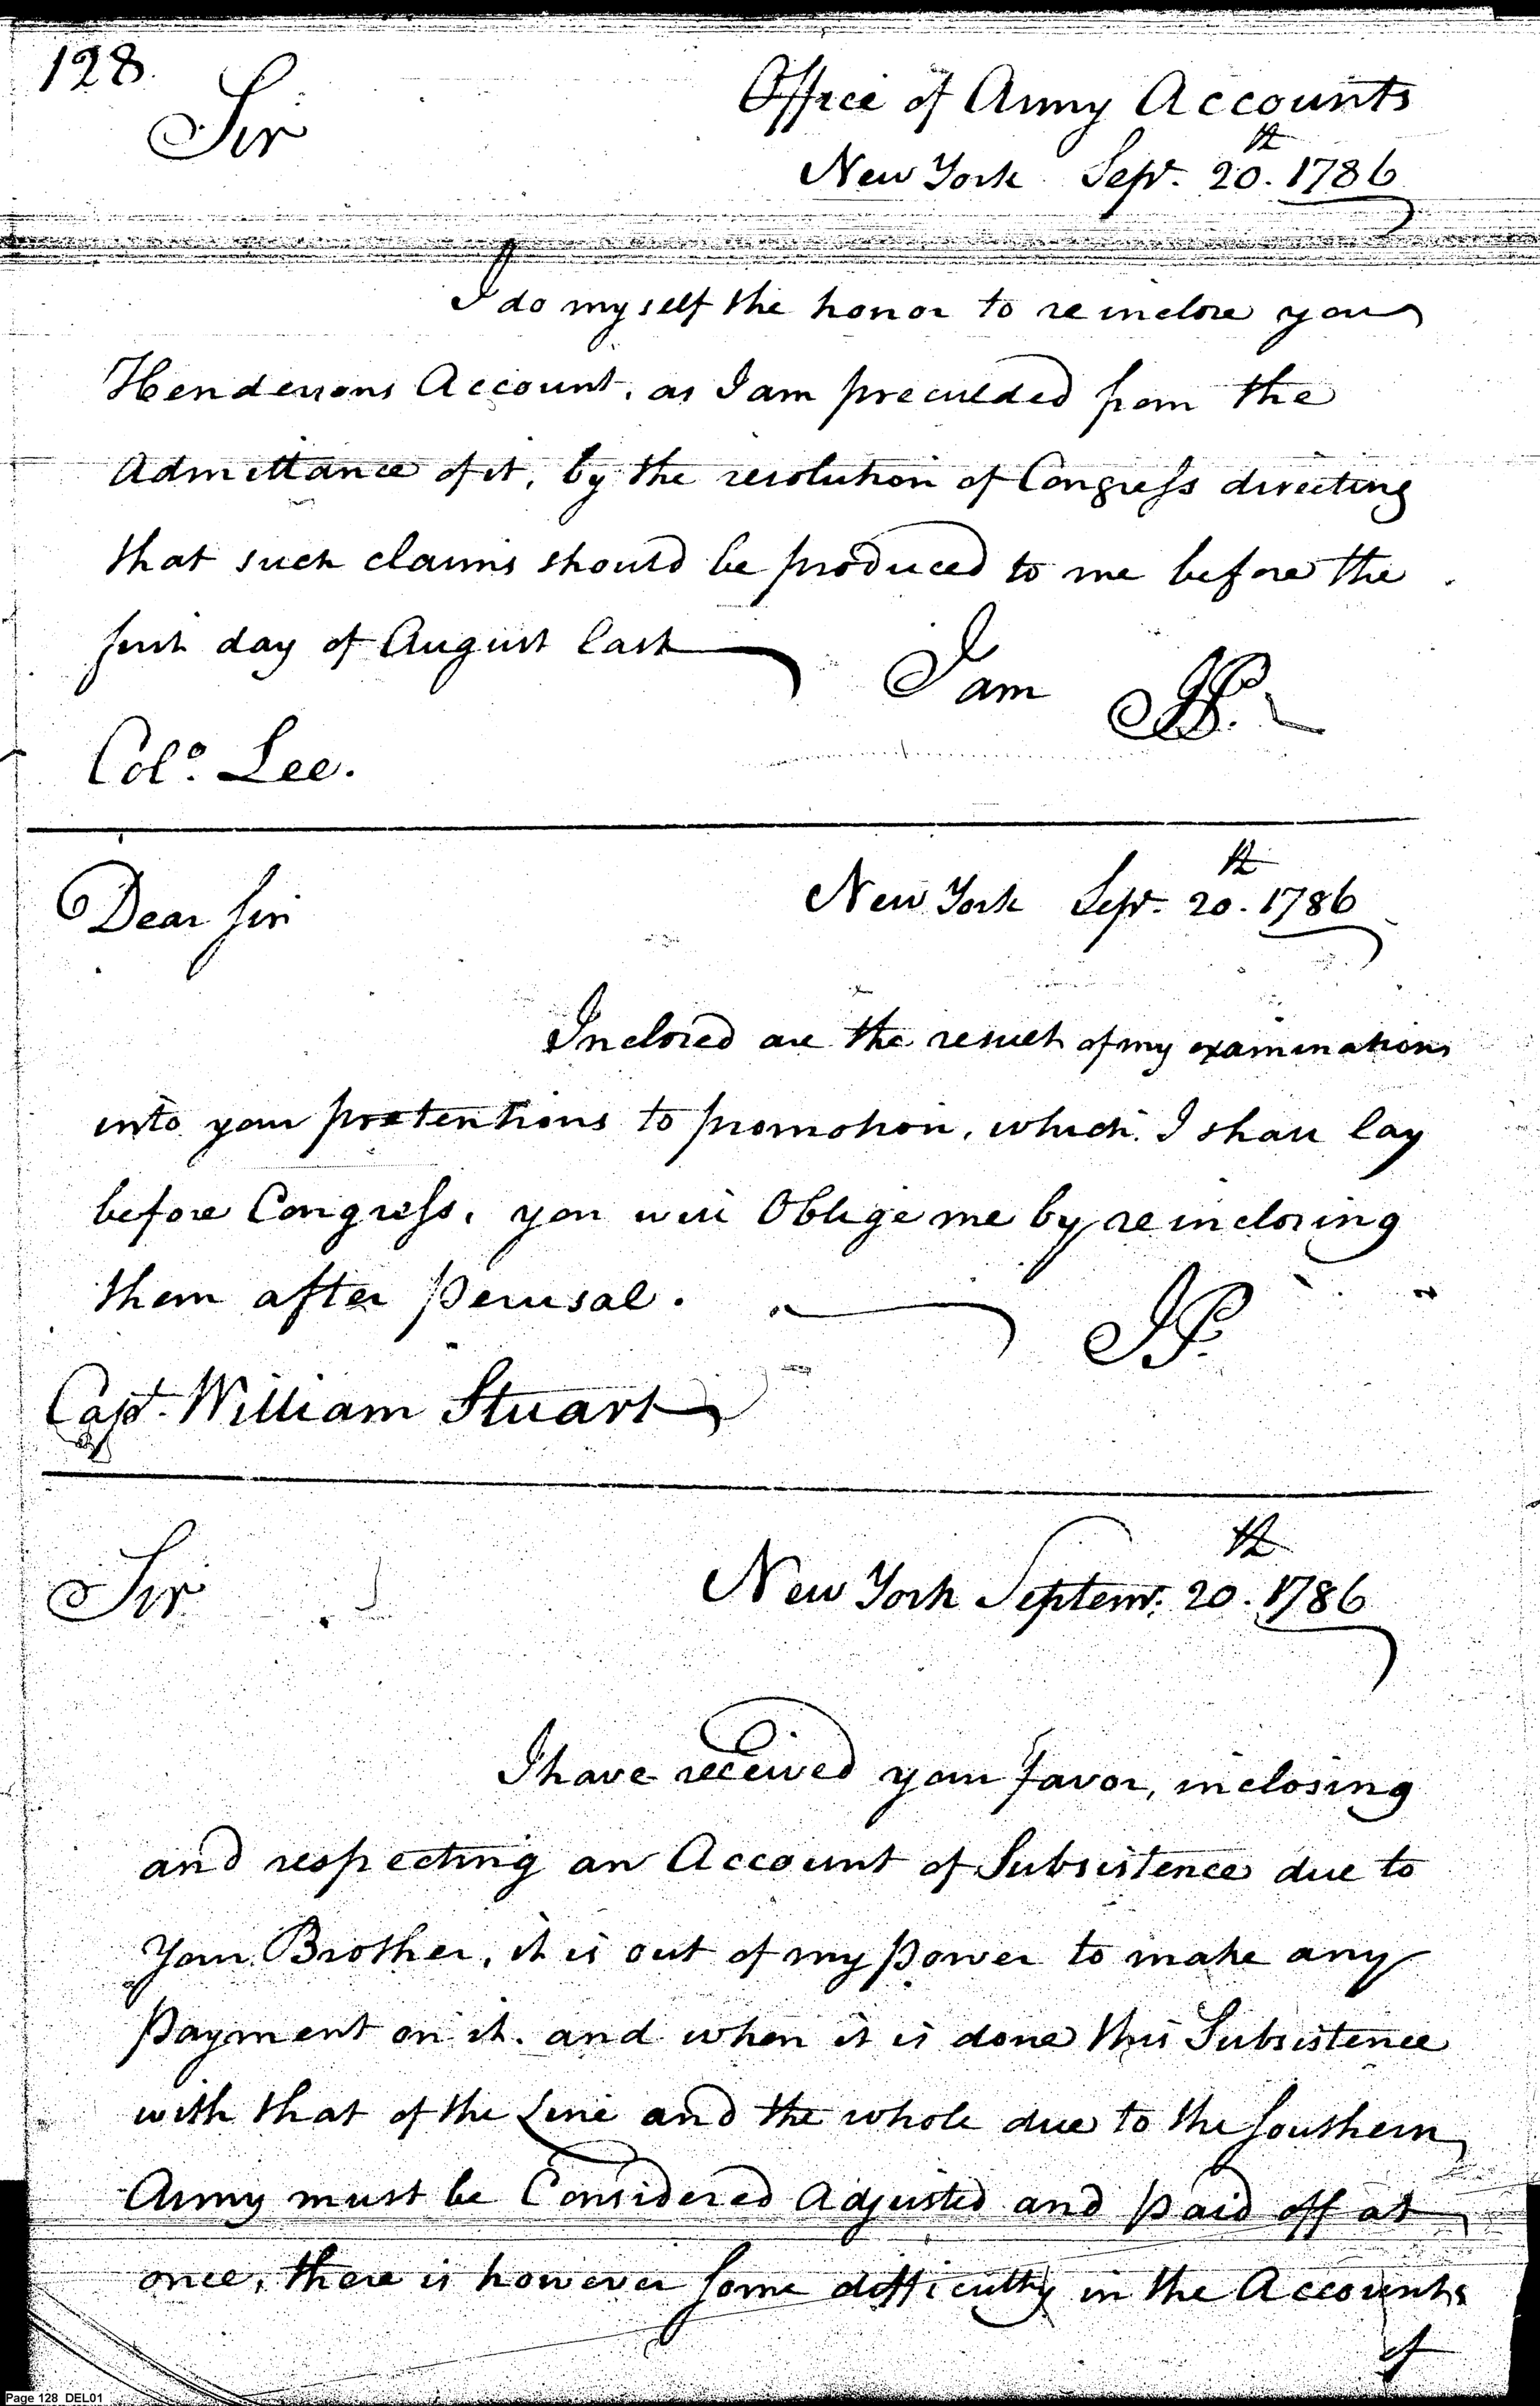 128.
Sir
Office of Army Accounts
New York Sepr. 20.th 1786
I do myself the honor to reinclose you
Hendersons Account, as I am preculded from the
Admittance of it, by the resolution of Congress directing
that such claims should be produced to me before the
first day of August last
I am JP.
Colo. Lee.
Dear Sir
New York Sepr. 20.th 1786
Inclosed are the result of my examinations
into your pretentions to promotion, which I shall lay
before Congress. you will Oblige me by reinclosing
them after perusal.
JP.
Capt. William Stuart
Sir
New York Septemr. 20.th 1786
I have received your favor, inclosing
and respecting an Account of Subsistence due to
Your Brother, it is out of my power to make any
Payment on it. and when it is done this Subsistence
with that of the Line and the whole due to the Southern
Army must be Considered Adjusted and paid off at
once, there is however some difficulty in the Accounts
of
Page 128 DEL01